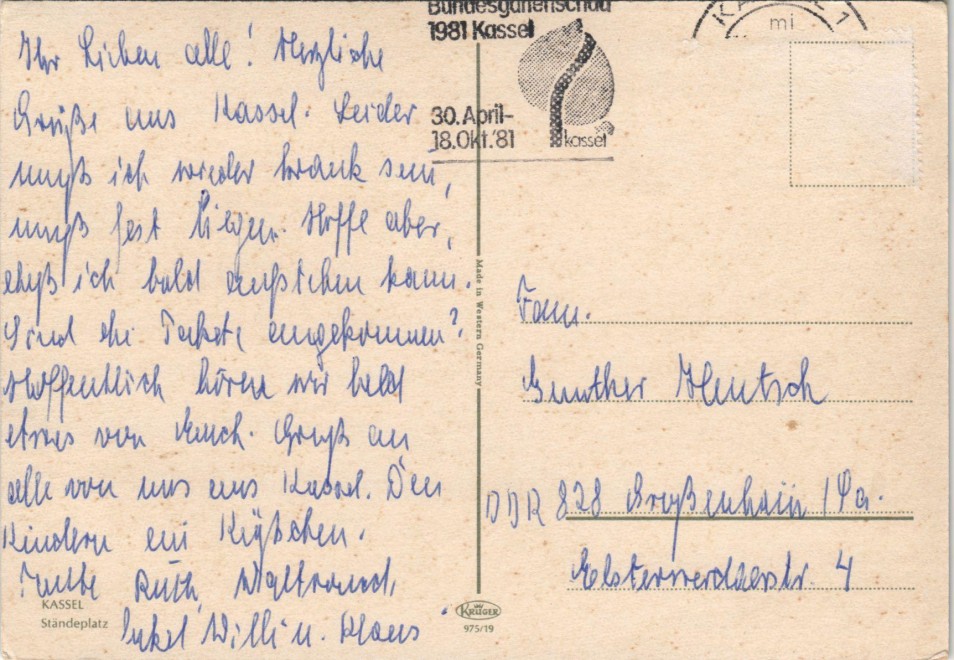 Ihr Lieben alle! Herzliche
Grüße aus Kassel. Leider
muß ich wieder krank sein,
muß fest liegen. Hoffe aber,
daß ich bald aufstehen kann.
Sind die Pakete angekommen?
Hoffentlich hören wir bald
etwas von Euch. Gruß an
alle von uns aus Kassel. Den
Kindern ein Küßchen.
Ruth, Waltraud,
Onkel Willi u. Klaus
KASSEL
Ständeplatz
Bundesgartenschau
1981 Kassel
30. April-
18. Okt. '81
kassel
mi
Made in Western Germany
KRÜGER
975/19
Fam.
Gunther Hentsch
DDR 828 Großenhain / Sa.
Elsterwerdaerstr. 4